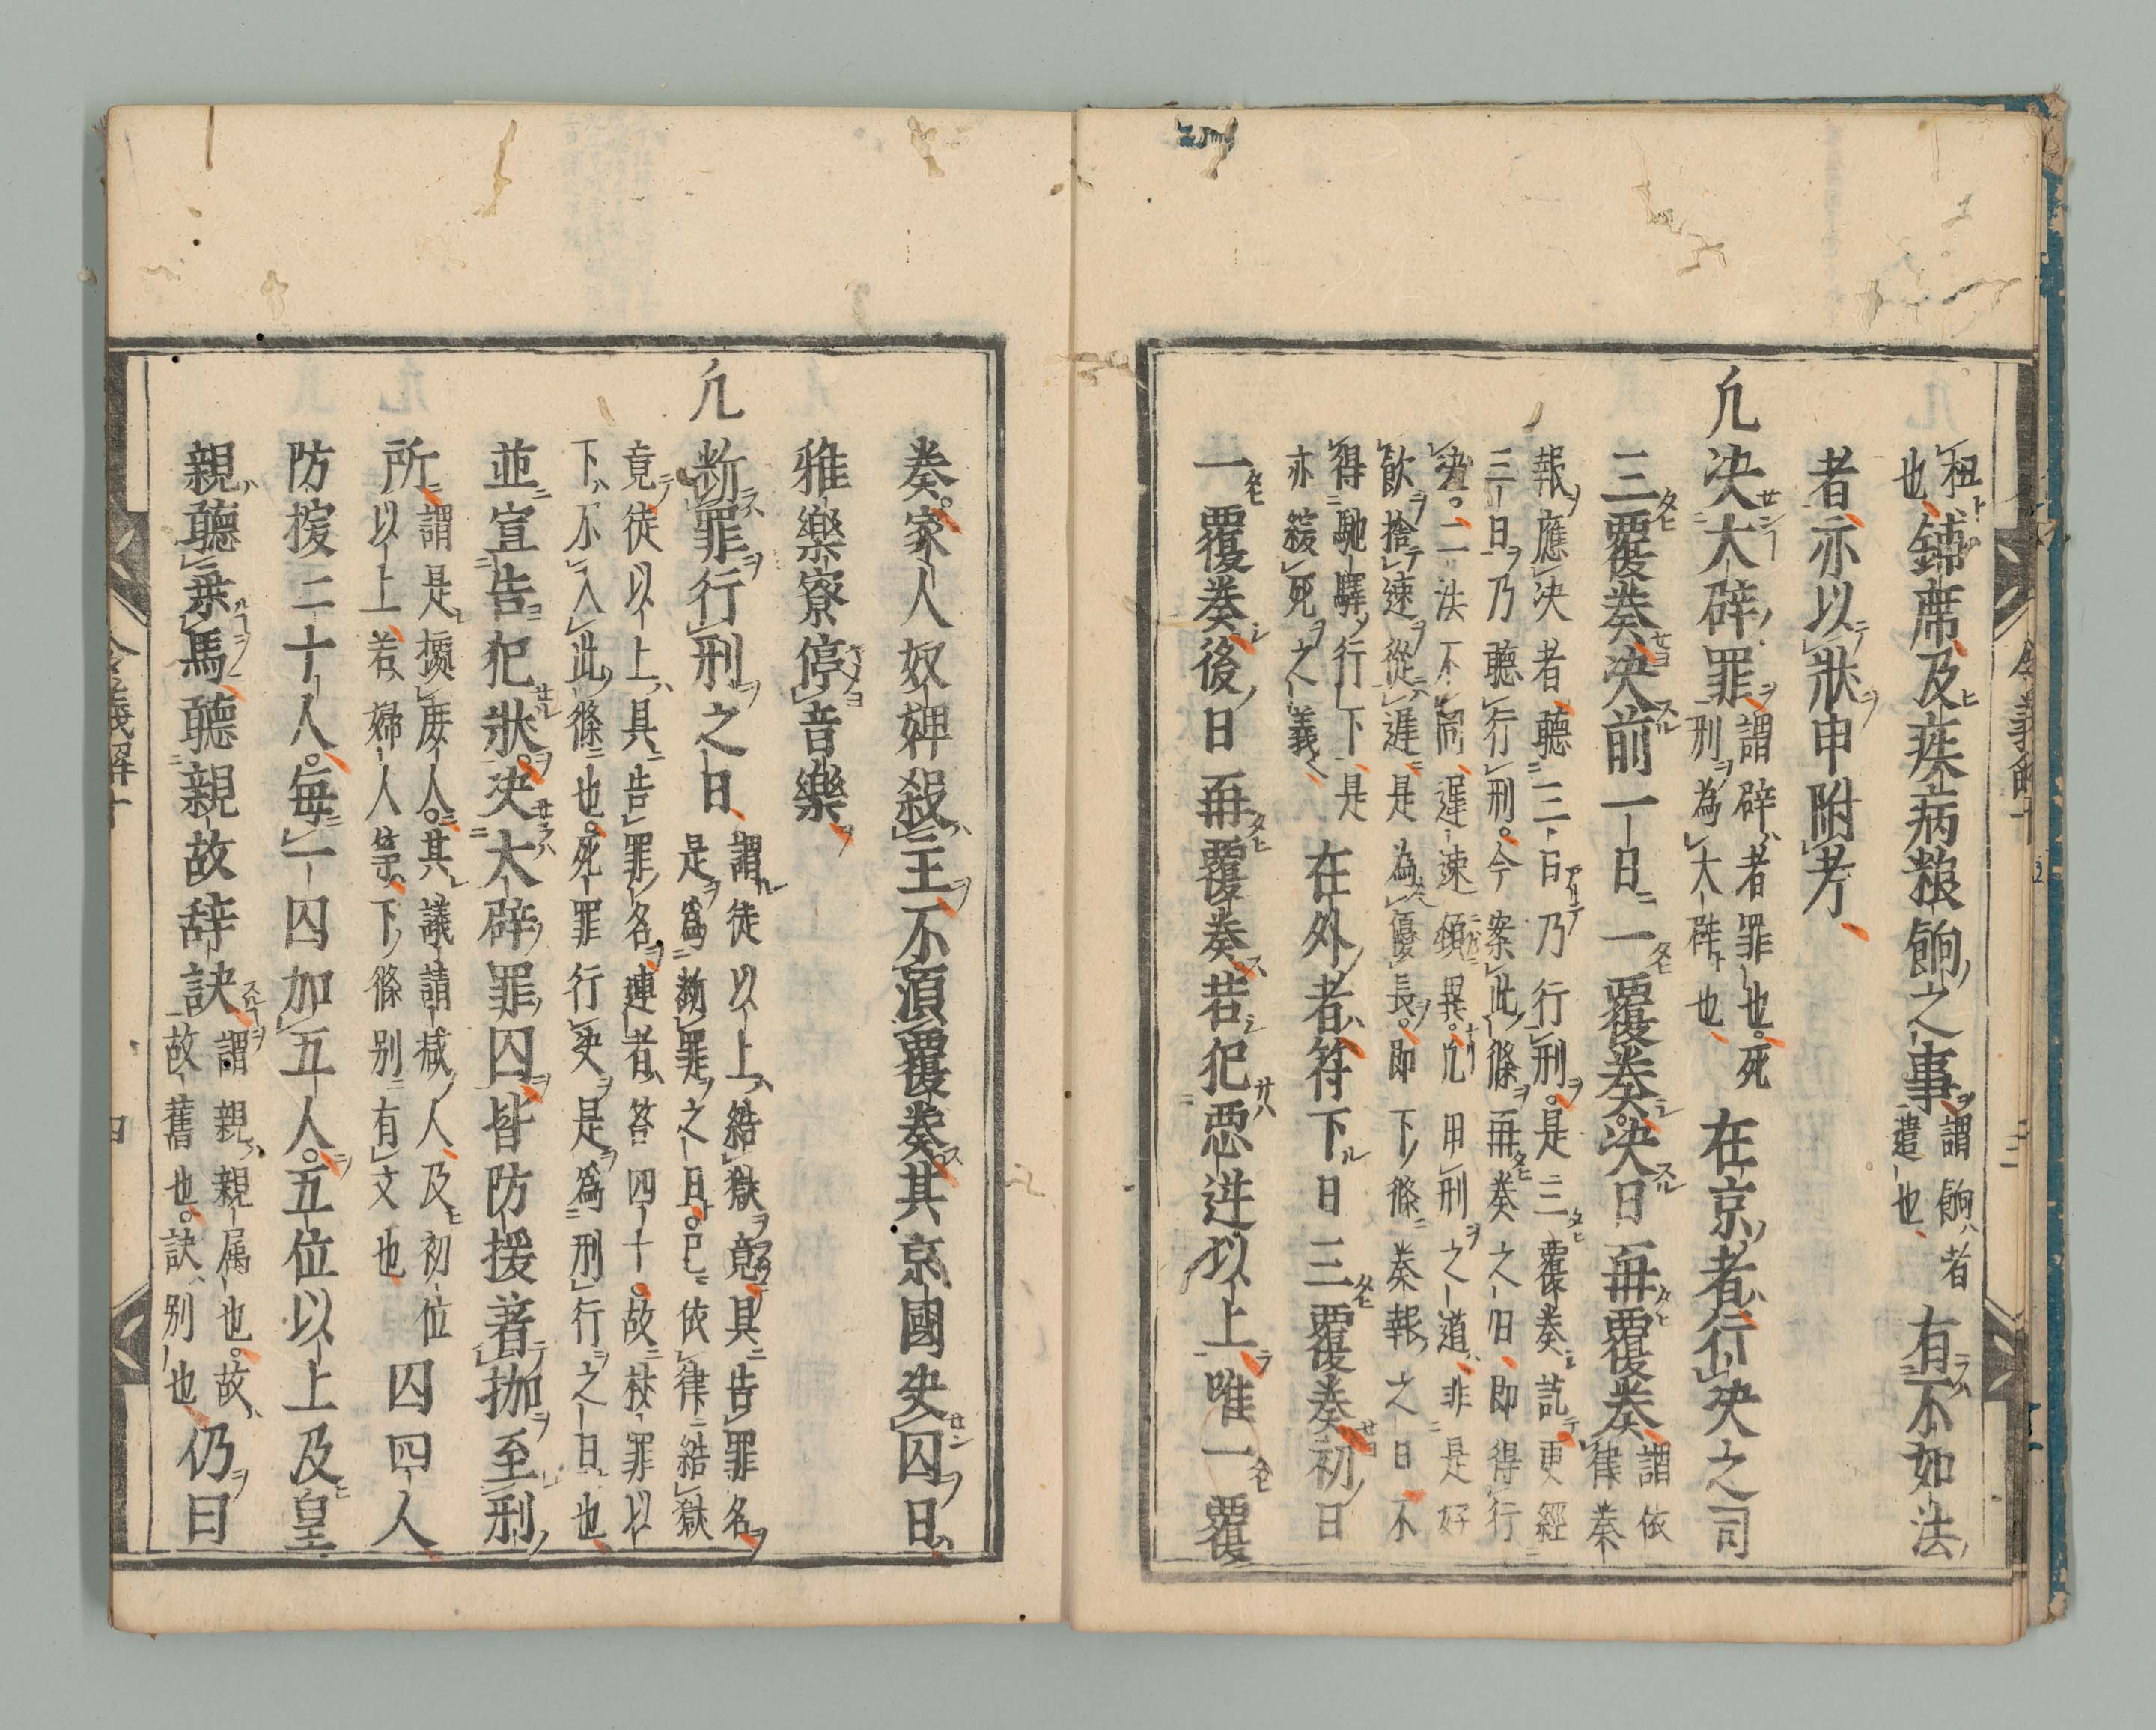 杻也鋪席及疾病粮餉之事謂餉者遣也有不如法
者亦以狀申附考
凢决大辟罪謂辟者罪也死刑為大辟也在京者行决之司
三覆奏决前一日一覆奏决日再覆奏謂依律奏
報應决者聽三日乃行刑是三覆奏訖更經
三日乃聽行刑今案此條再奏之日即得行
决二法不同遲速頗異凢用刑之道非是好
飲捨速從遲是為優長即下條奏報之日不
得馳驛行下是亦緩死之義在外者符下日三覆奏初日
一覆奏後日再覆奏若犯惡逆以上唯一覆
奏家人奴婢殺主不須覆奏其京國决囚日
雅樂寮停音樂
凢断罪行刑之日謂徒以上結獄竟具告罪名是爲断罪之日已依律結獄
竟徒以上具告罪名連者笞四十故杖罪以
下不入此條也死罪行决是爲刑行之日也
並宣告犯狀决大辟罪囚皆防援著枷至刑
所謂是據庶人其議請減人及初位以上若婦人等下條別有文也囚四人
防援二十人每一囚加五人五位以上及皇
親聽乗馬聽親故辞訣謂親親属也故故舊也訣別也仍日